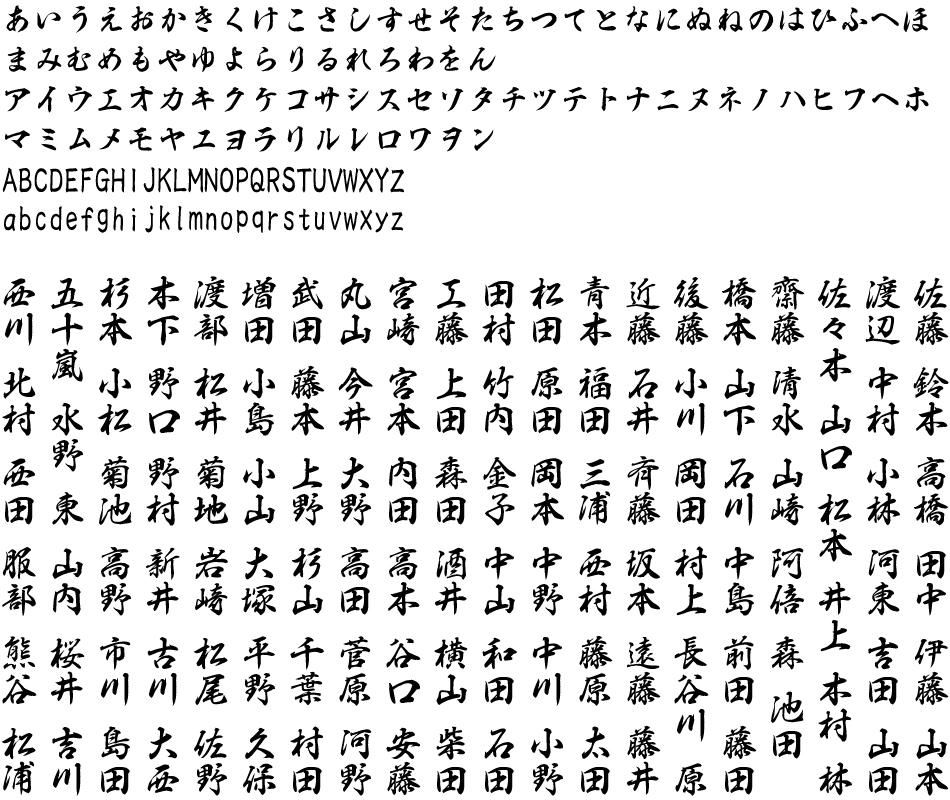 あいうえおかきくけこさしすせそたちつてとなにぬねのはひふへほ
まみむめもやゆよらりるれろわをん
アイウエオカキクケコサシスセソタチツテトナニヌネノハヒフヘホ
マミムメモヤユヨラリルレロワヲン
ABCDEFGHIJKLMNOPQRSTUVWXYZ
abcdefghijklmnopqrstuvwxyz
佐藤 鈴木 高橋 田中 伊藤 山本
渡辺 中村 小林 河東 吉田 山田
佐々木 山口 松本 井上 木村 林
齋藤 清水 山崎 阿倍 森 池田
橋本 山下 石川 中島 前田 藤田
後藤 小川 岡田 村上 長谷川 原
近藤 石井 斉藤 坂本 遠藤 藤井
青木 福田 三浦 西村 藤原 太田
松田 原田 岡本 中野 中川 小野
田村 竹内 金子 中山 和田 石田
工藤 上田 森田 酒井 横山 柴田
宮崎 宮本 内田 高木 谷口 安藤
丸山 今井 大野 高田 菅原 河野
武田 藤本 上野 杉山 千葉 村田
増田 小島 小山 大塚 平野 久保
渡部 松井 菊地 岩崎 松尾 佐野
木下 野口 野村 新井 古川 大西
杉本 小松 菊池 高野 市川 島田
五十嵐 水野 東 山内 桜井 吉川
西川 北村 西田 服部 熊谷 松浦